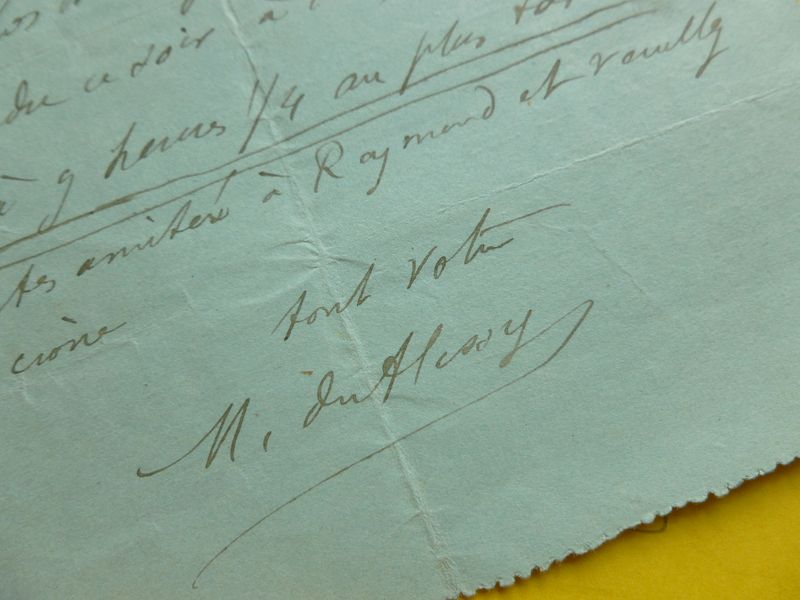 du ce soir à
à 9 heures 1/4 au plus tot
tes amitiés à Raymond et veuillez
croire tout votre
M. du Plessy